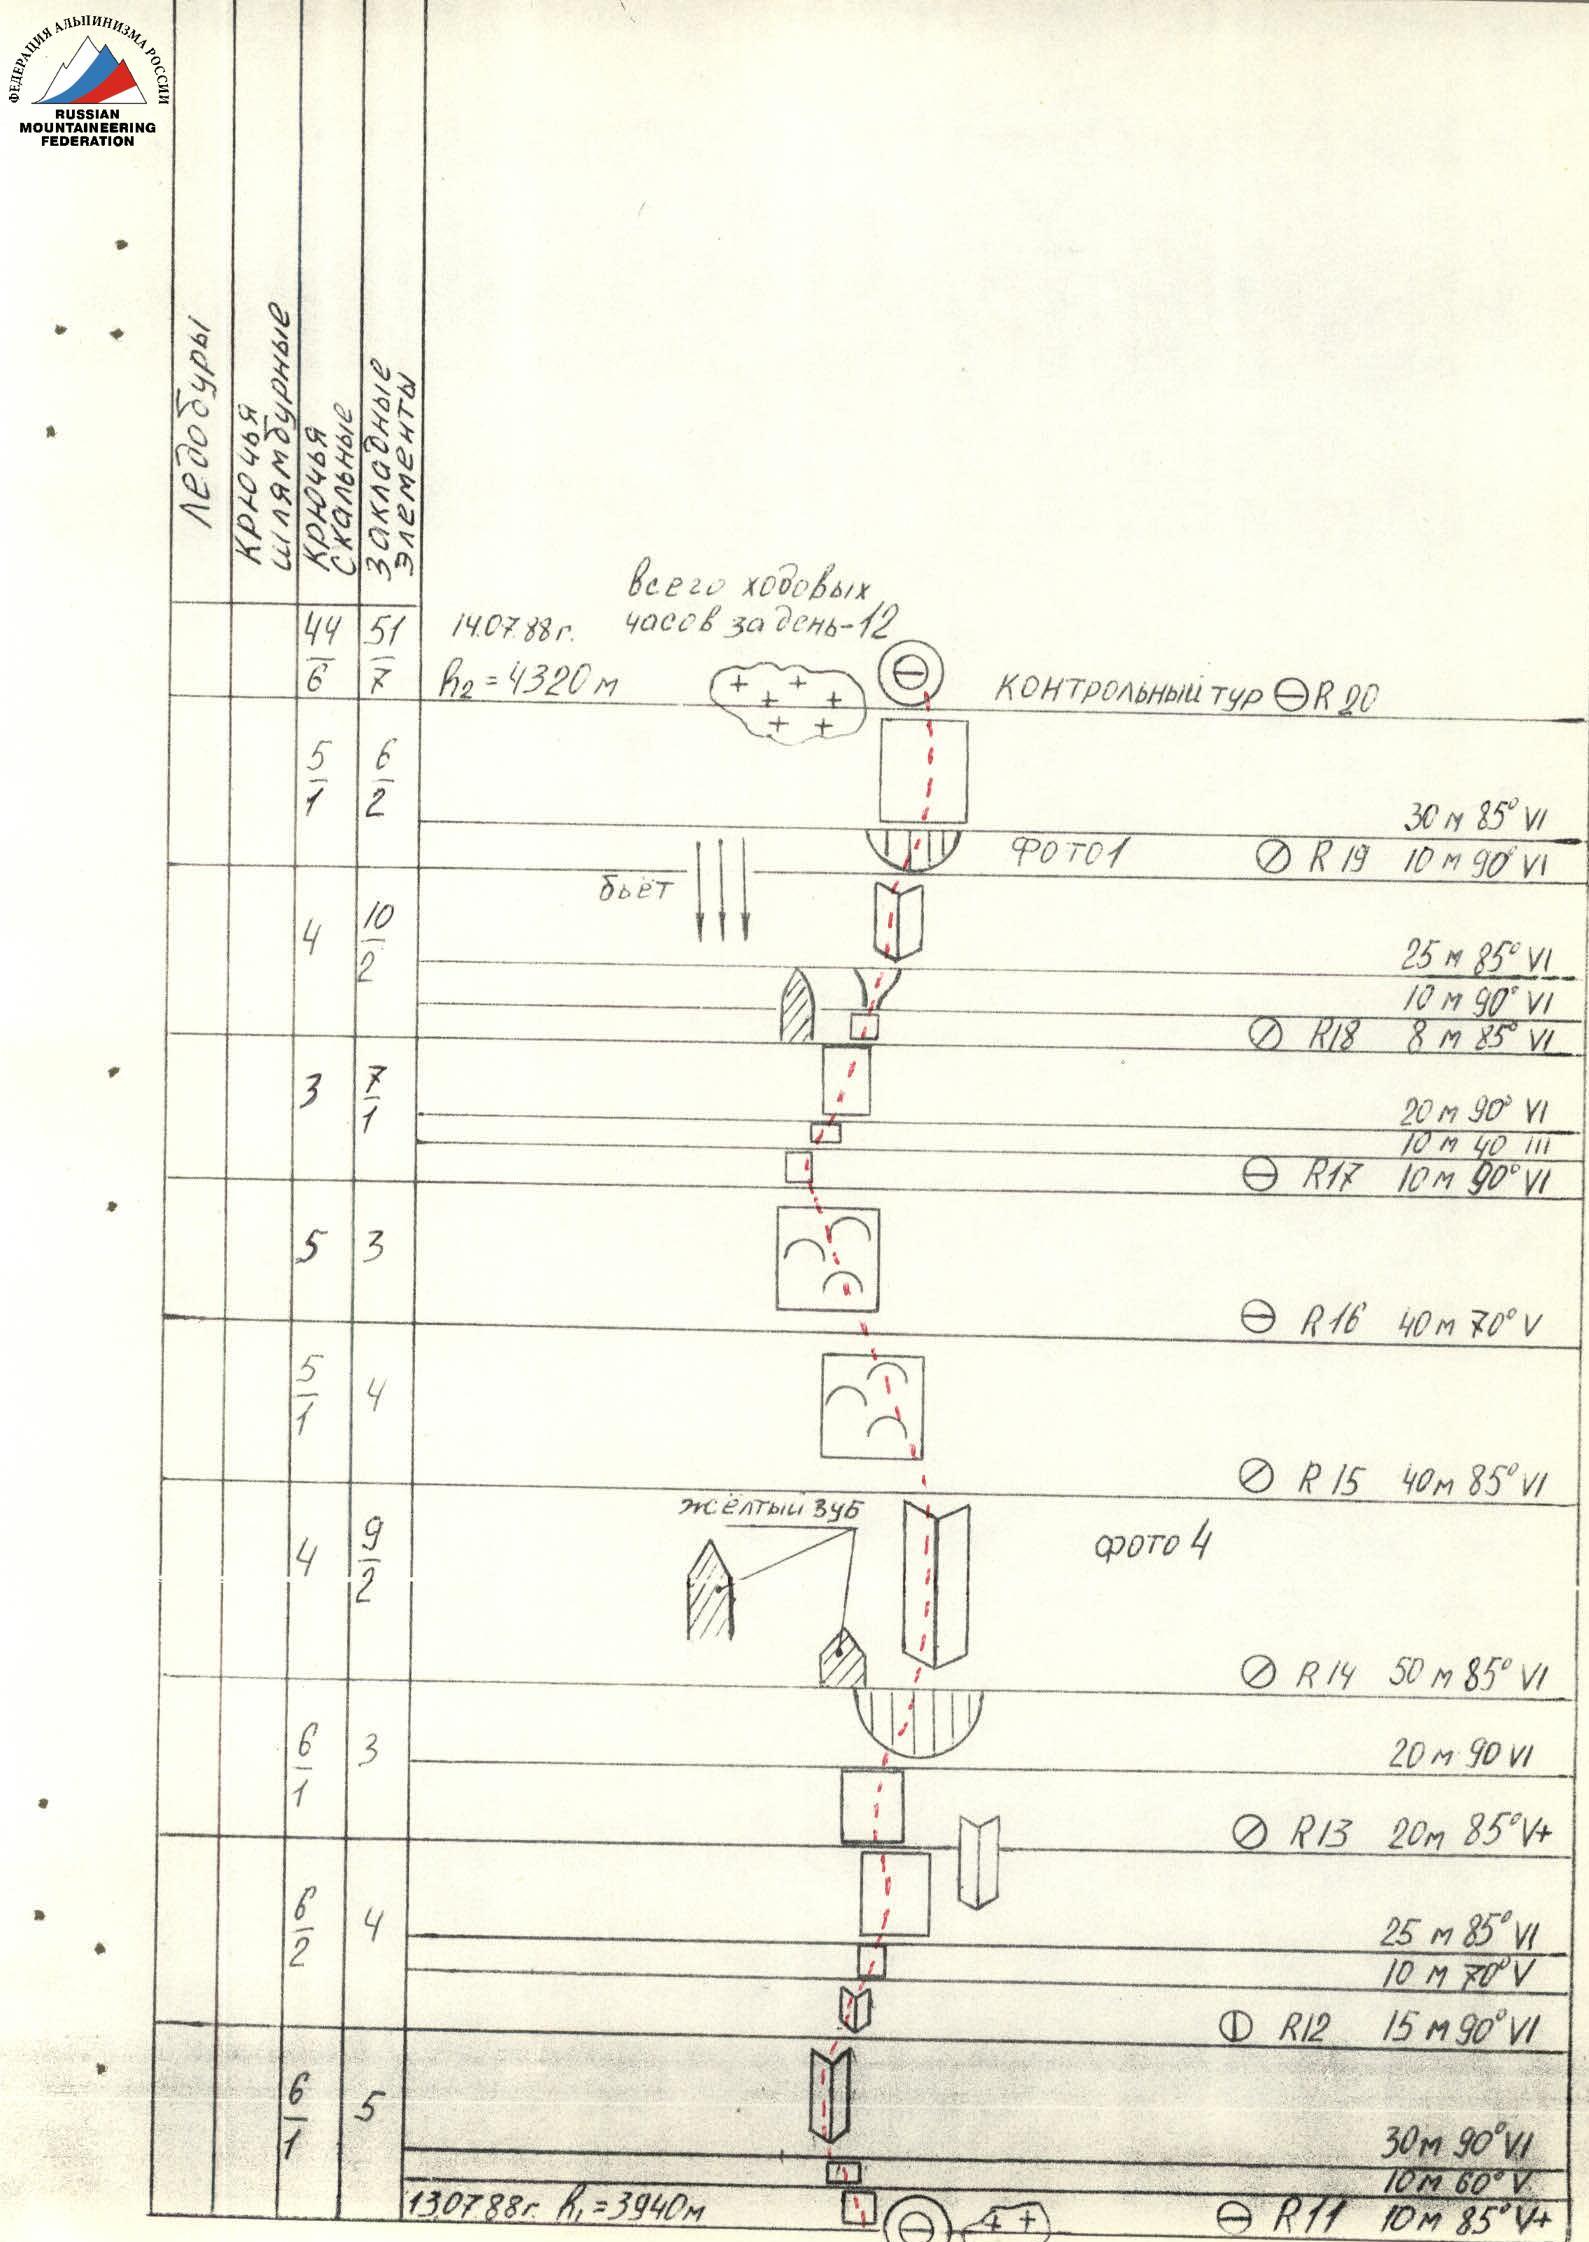 ФЕДЕРАЦИЯ АЛЬПИНИЗМА РОССИИ
RUSSIAN
MOUNTAINEERING
FEDERATION
Ледобуры
Крючья
шлямбурные
Крючья
скальные
Закладные
элементы
всего ходовых
часов за день-12
44/6 51/7 14.07.88г.
h2 = 4320 м
Контрольный тур R 20
5/1 6/2
30 м 85° VI
Фото1 R 19 10 м 90° VI
бьёт
4 10/2
25 м 85° VI
10 м 90° VI
R18 8 м 85° VI
3 7/1
20 м 90° VI
10 м 40 III
R17 10 м 90° VI
5 3
R16 40 м 70° V
5/1 4
R 15 40 м 85° VI
жёлтый зуб
4 9/2 фото 4
R 14 50 м 85° VI
6/1 3 20 м 90 VI
R13 20 м 85° V+
6/2 4 25 м 85° VI
10 м 70° V
R12 15 м 90° VI
6/1 5
30 м 90° VI
10 м 60° V
13.07.88г. h1 = 3940 м R11 10 м 85° V+